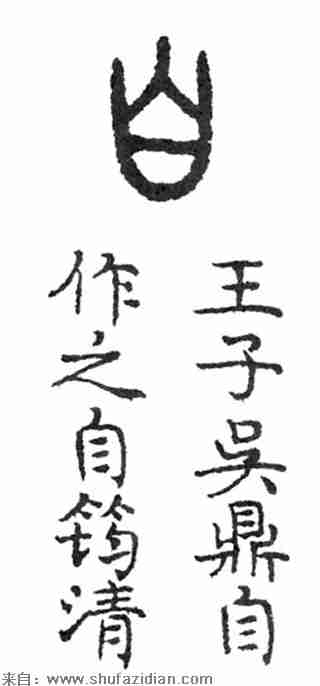 自
王子吳鼎自
作之自筠清
来自：www.shufazidian.com